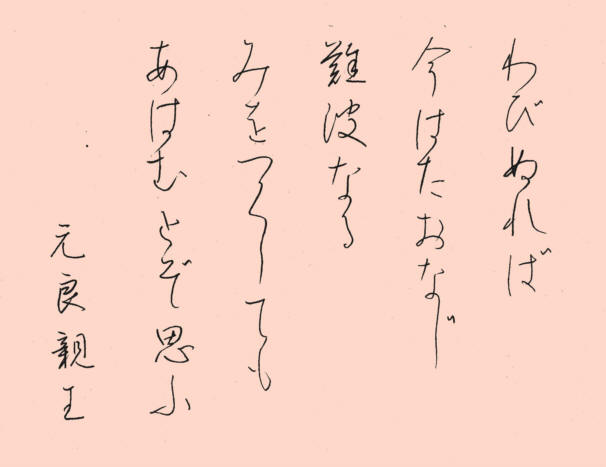 わびぬれば
今はたおなじ
難波なる
みをつくしても
あはむとぞ思ふ
元良親王